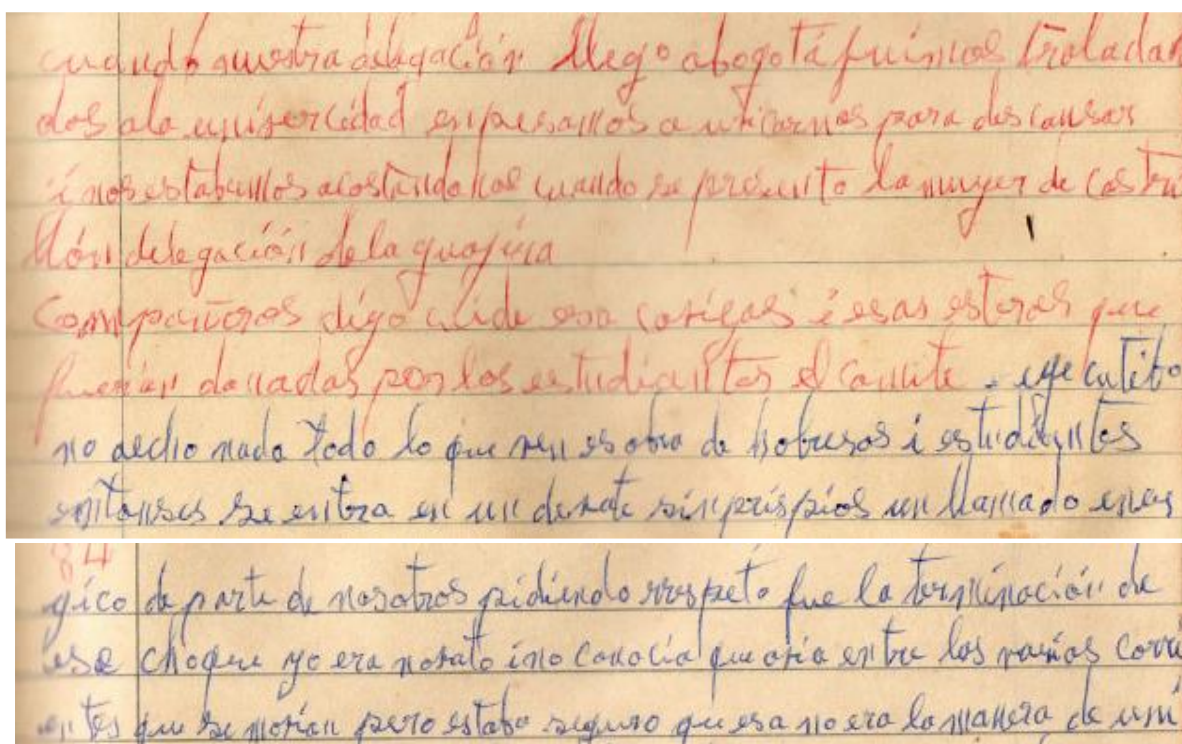 cuando nuestra delegación llego abogotá fuimos traladan
dos ala univercidad enpesamos a uvicarnos para descansar
i nos estabamos acostandonos cuando se presento la muger de castri
llón delegación de la guagira
Compañeros digo cuide esa covigas i esas esteras que
fuerón donadas por los estudiantes el comite. egecutibo
no aecho nada todo lo que ven es obra de hobreros i estudiantes
entonses se entra en un devate sin prispios un llamado ener
84
gico de parte de nosotros pidiendo rrespeto fue la terminación de
ese choque yo era nobato i no conocía que abia entre las varias corri
entes que se movian pero estaba seguro que esa no era la manera de uni